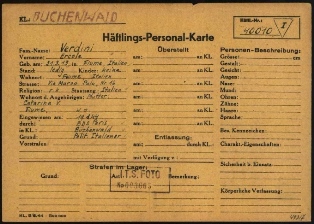 KL: BUCHENWALD
Häftl.-Nr.: 40010 I
Häftlings-Personal-Karte
Fam.-Name: Verdini
Vorname: Ercole
Geb. am: in Fiume, Italien
Stand: ledig Kinder: keine
Wohnort: Fiume, Italien
Strasse: Via Marco Polo, Nr.
Religion: r.k. Staatsang.: Italien
Wohnort d. Angehörigen: Mutter:
Caterina V.
Fiume, w.o.
Eingewiesen am:
durch:
in KL.: Buchenwald
Grund: Polit. Italiener
Vorstrafen:
Überstellt
am: an KL.
am: an KL.
am: an KL.
am: an KL.
am: an KL.
am: an KL.
Entlassung:
am: durch KL.:
mit Verfügung v.:
Personen-Beschreibung:
Grösse: cm
Gestalt:
Gesicht:
Augen:
Nase:
Mund:
Ohren:
Zähne:
Haare:
Sprache:
Bes. Kennzeichen:
Charakt.-Eigenschaften:
Sicherheit b. Einsatz:
Körperliche Verfassung:
Strafen im Lager:
Grund: Art:
I.T.S. FOTO